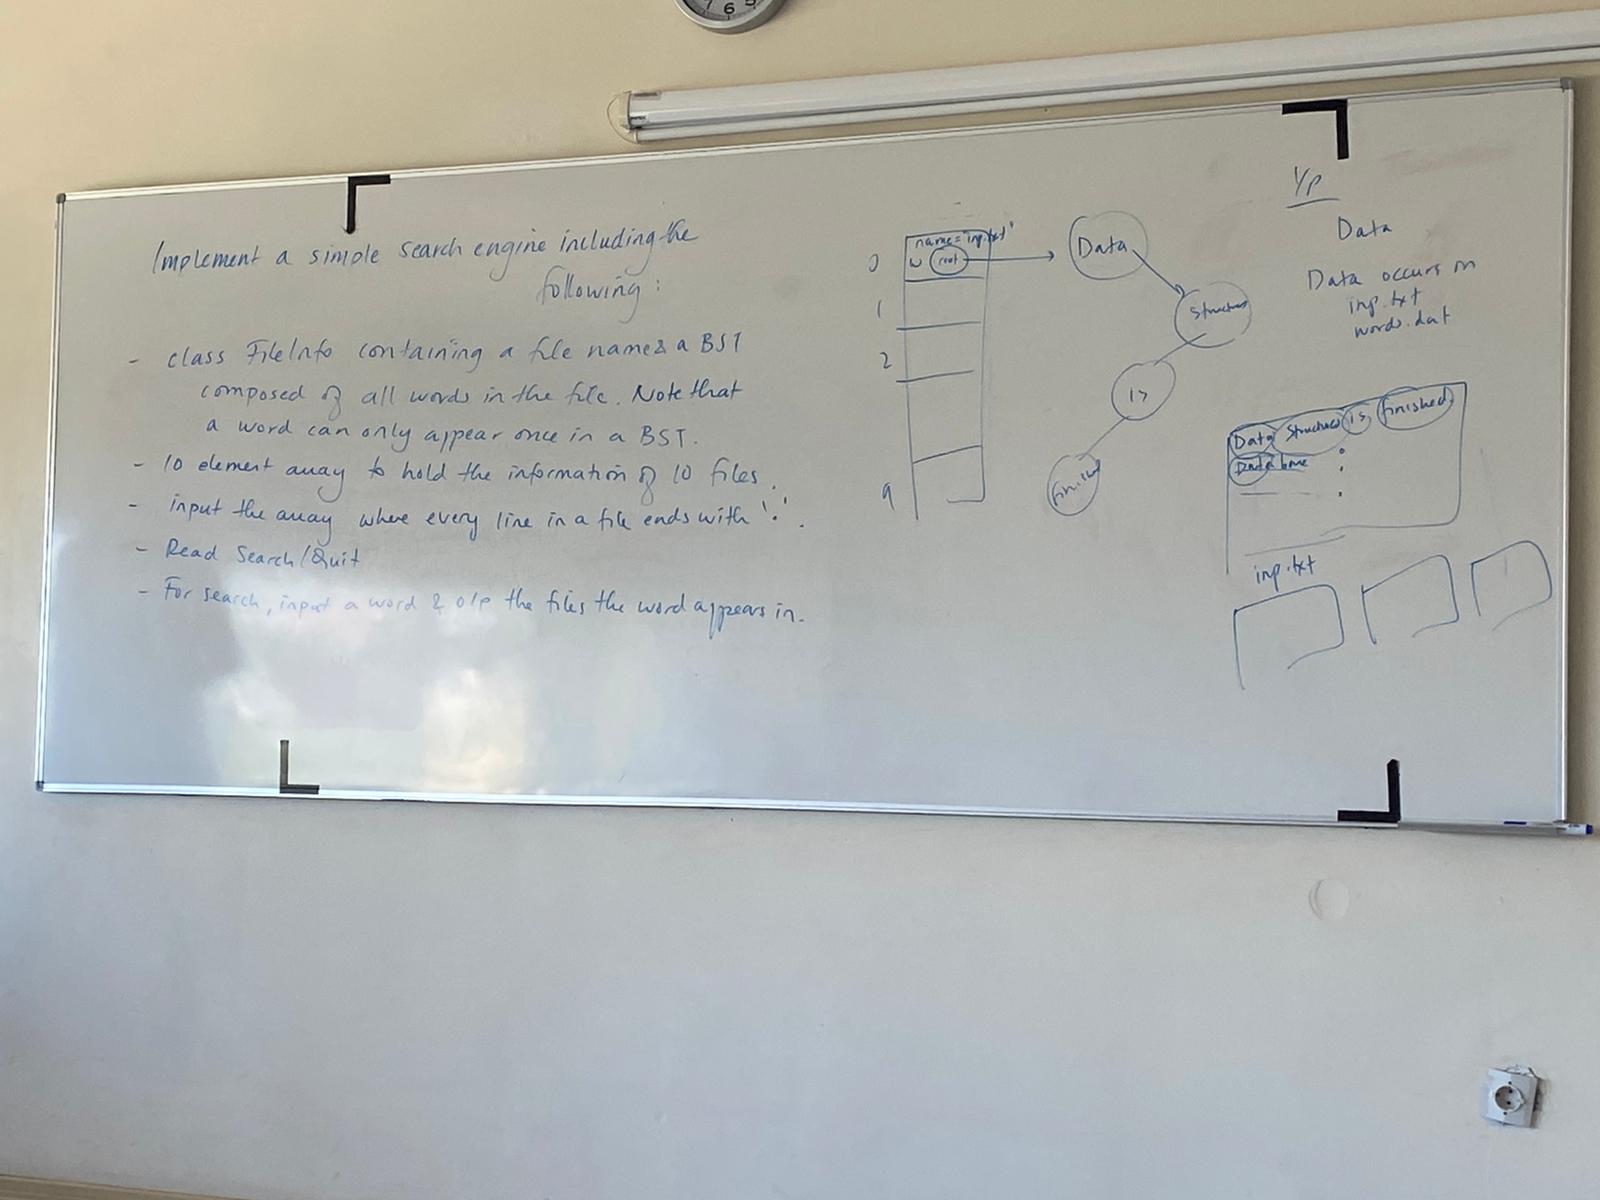 Implement a simple search engine including the
following:
- class FileInfo containing a file name & a BST
composed of all words in the file. Note that
a word can only appear once in a BST.
- 10 element array to hold the information of 10 files.
- input the array where every line in a file ends with '.'.
- Read Search/Quit
- For search, input a word & o/p the files the word appears in.
0
name="inp.txt"
w root
1
2
9
Data
Structures
is
finished
I/p
Data
Data occurs in
inp.txt
words.dat
Data Structures is finished.
Data base
inp.txt
6